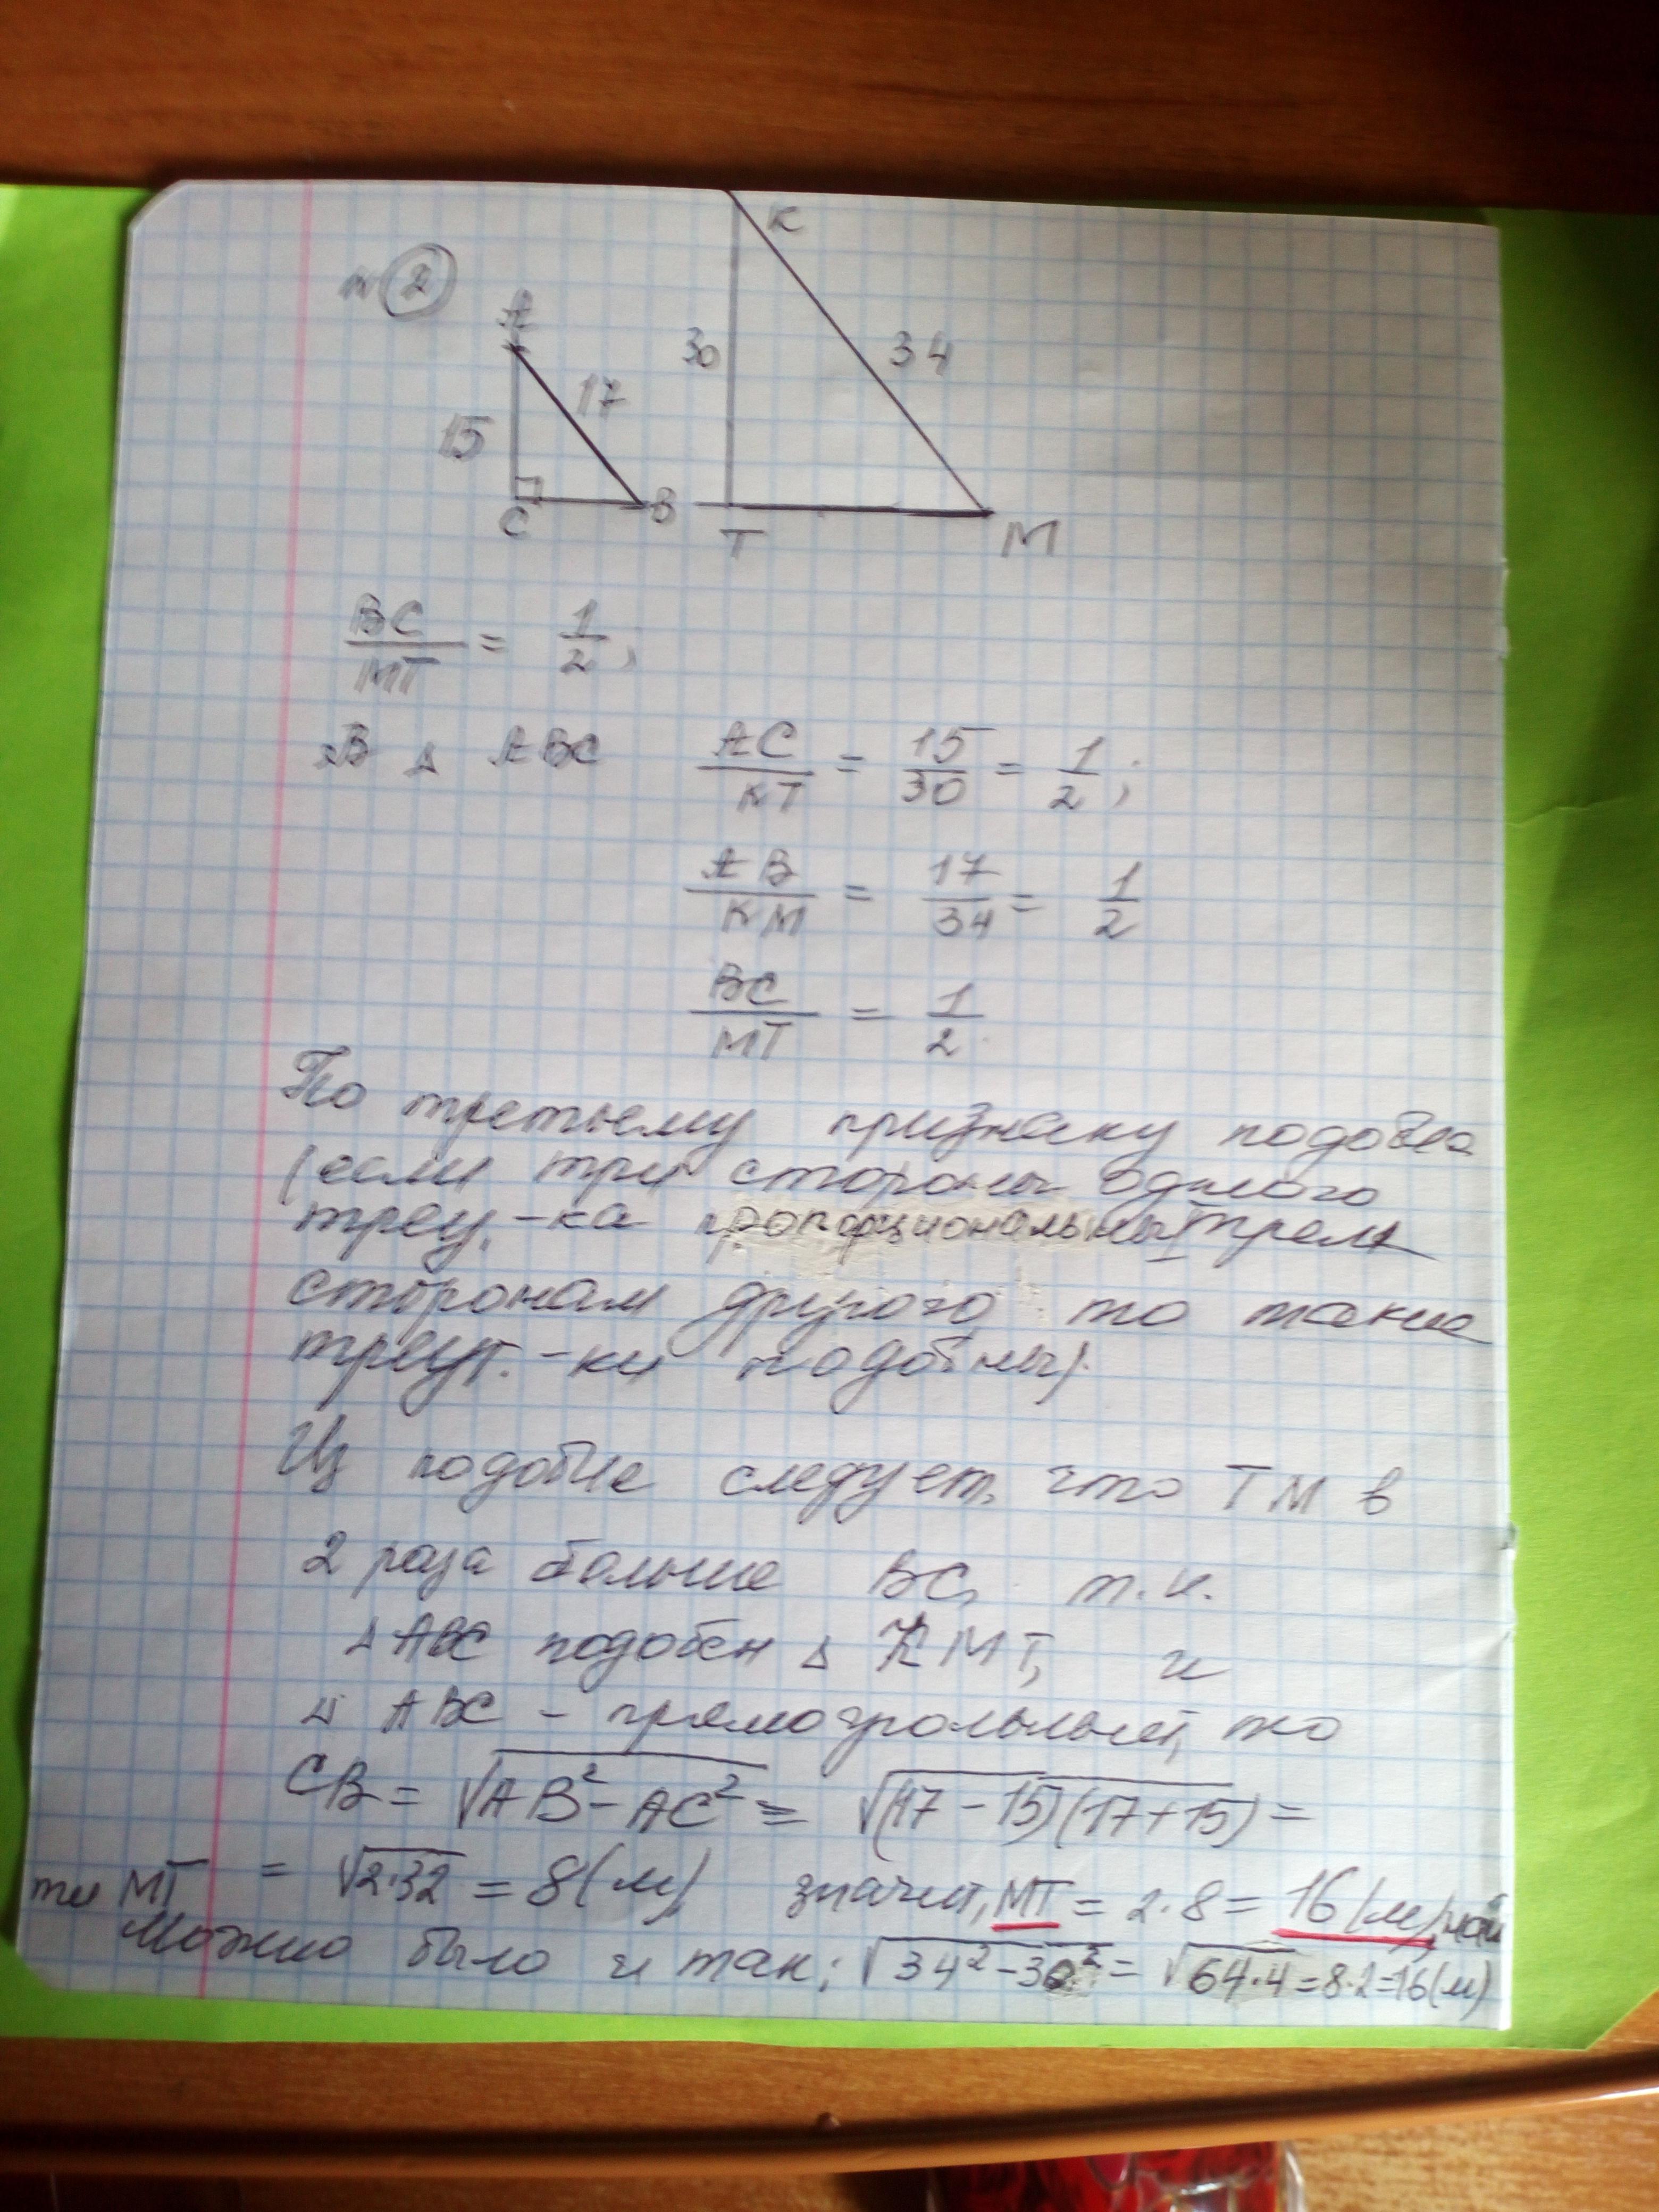 № 2
A
K
15
17
30
34
C
B
T
M
BC/MT = 1/2;
В △ ABC AC/KT = 15/30 = 1/2;
AB/KM = 17/34 = 1/2
BC/MT = 1/2.
По третьему признаку подобия
(если три стороны одного
треуг.-ка пропорциональны трем
сторонам другого, то такие
треуг.-ки подобны).
Из подобия следует, что TM в
2 раза больше BC, т.к.
△ ABC подобен △ KMT, и
△ ABC – прямоугольный, то
CB = √(AB² - AC²) = √((17-15)(17+15)) =
= √(2·32) = 8 (м), значит, MT = 2·8 = 16 (м), най
ти MT
Можно было и так: √(34²-30²) = √(64·4) = 8·2 = 16 (м)